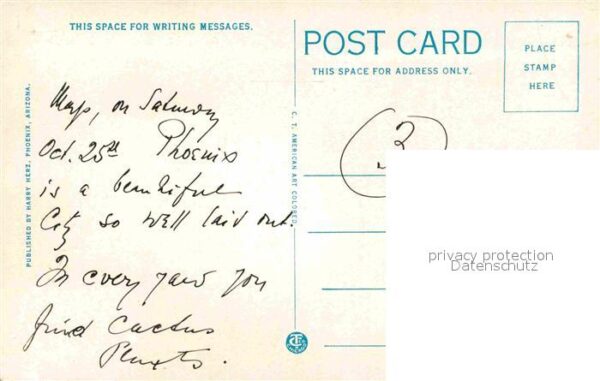 THIS SPACE FOR WRITING MESSAGES.
on Saturday
Oct. 25th Phoenix
is a beautiful
City so well laid out.
In every yard you
find Cactus
Plants.
PUBLISHED BY HARRY HERZ, PHOENIX, ARIZONA.
C. T. AMERICAN ART COLORED
POST CARD
THIS SPACE FOR ADDRESS ONLY.
PLACE
STAMP
HERE
3
privacy protection
Datenschutz